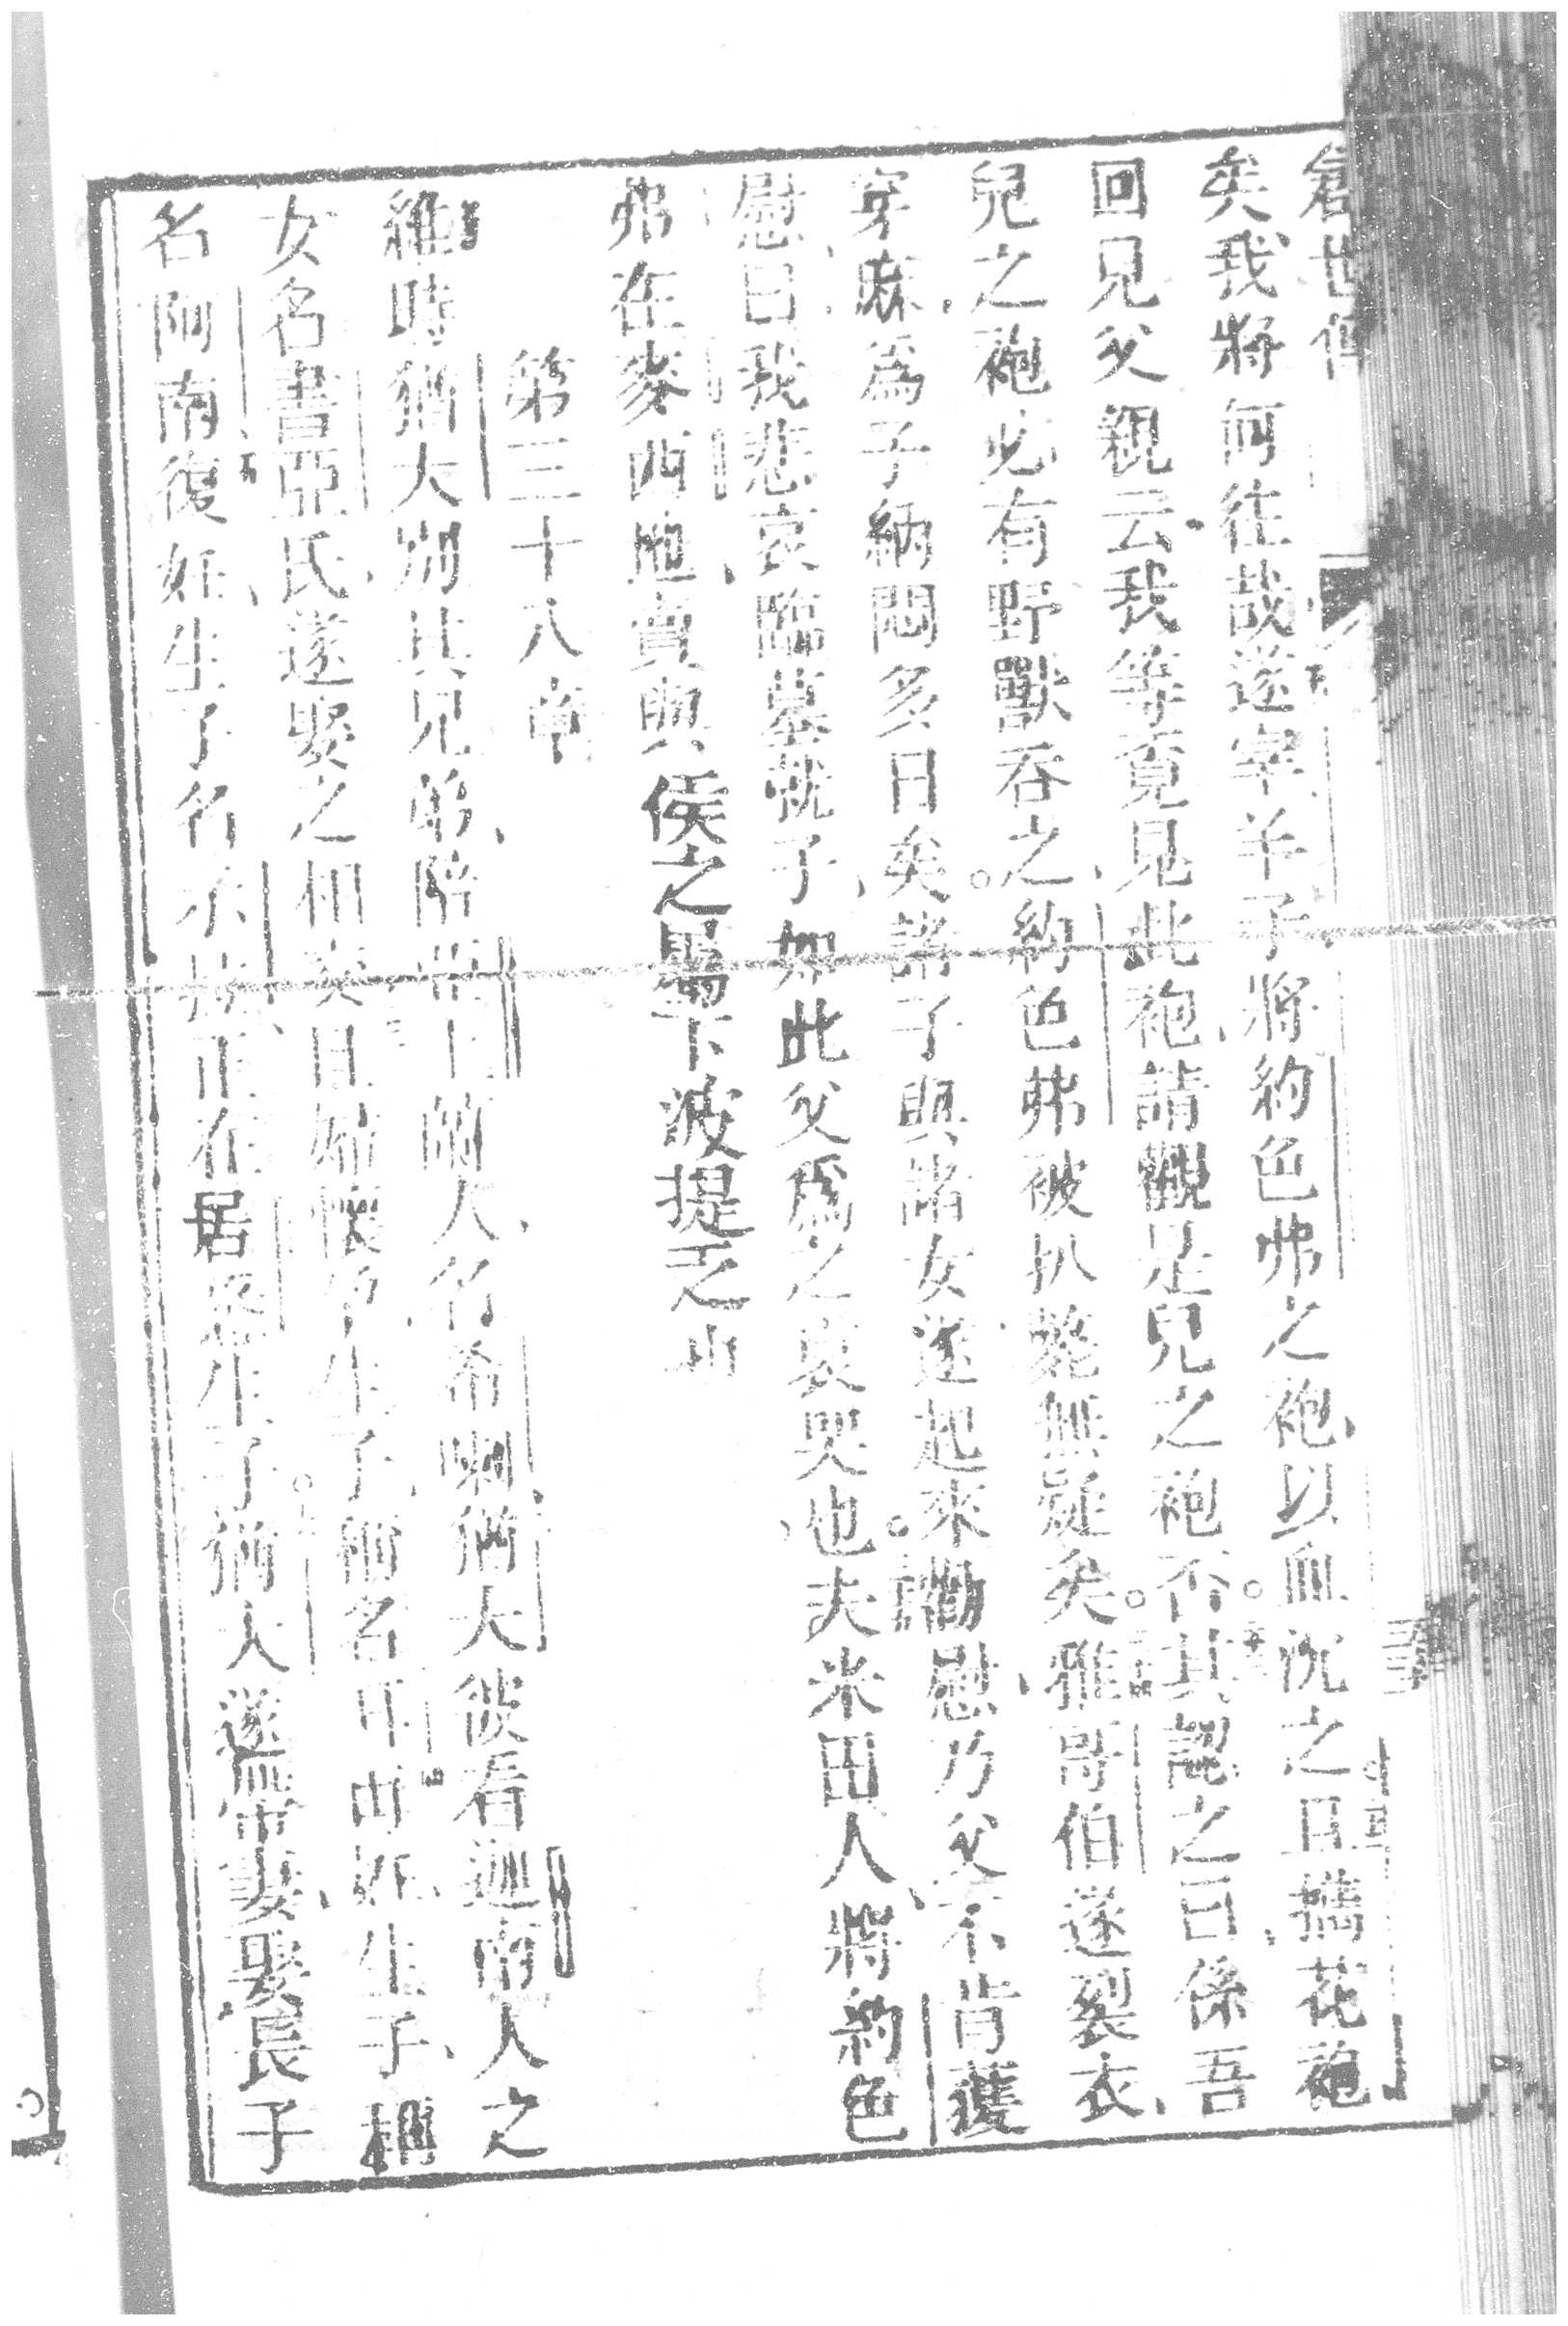 創世傳
矣、我將何往哉、遂宰羊子、將約色弗之袍、以血沈之、且攜花袍
回見父親云、我等竟見此袍、請觀是兒之袍否。其認之曰、係吾
兒之袍、必有野獸吞之、約色弗被扒斃無疑矣。雅哥伯遂裂衣、
穿麻、爲子納悶多日矣。諸子與諸女遂起來勸慰、乃父不肯獲
慰、曰、我悲哀臨墓就子、如此父爲之哀哭也。夫米田人將約色
弗在麥西地賣與侯之 波提乏也
第三十八章
維時猶大別其兄弟、陪 人、名希喇、猶大彼看迦南人之
女、名書亞氏、遂娶之相交、且婦懷孕生子、稱名耳、再妊生子、稱
名阿南、復妊生子、名示拉、正在居 生子。猶大遂 娶長子